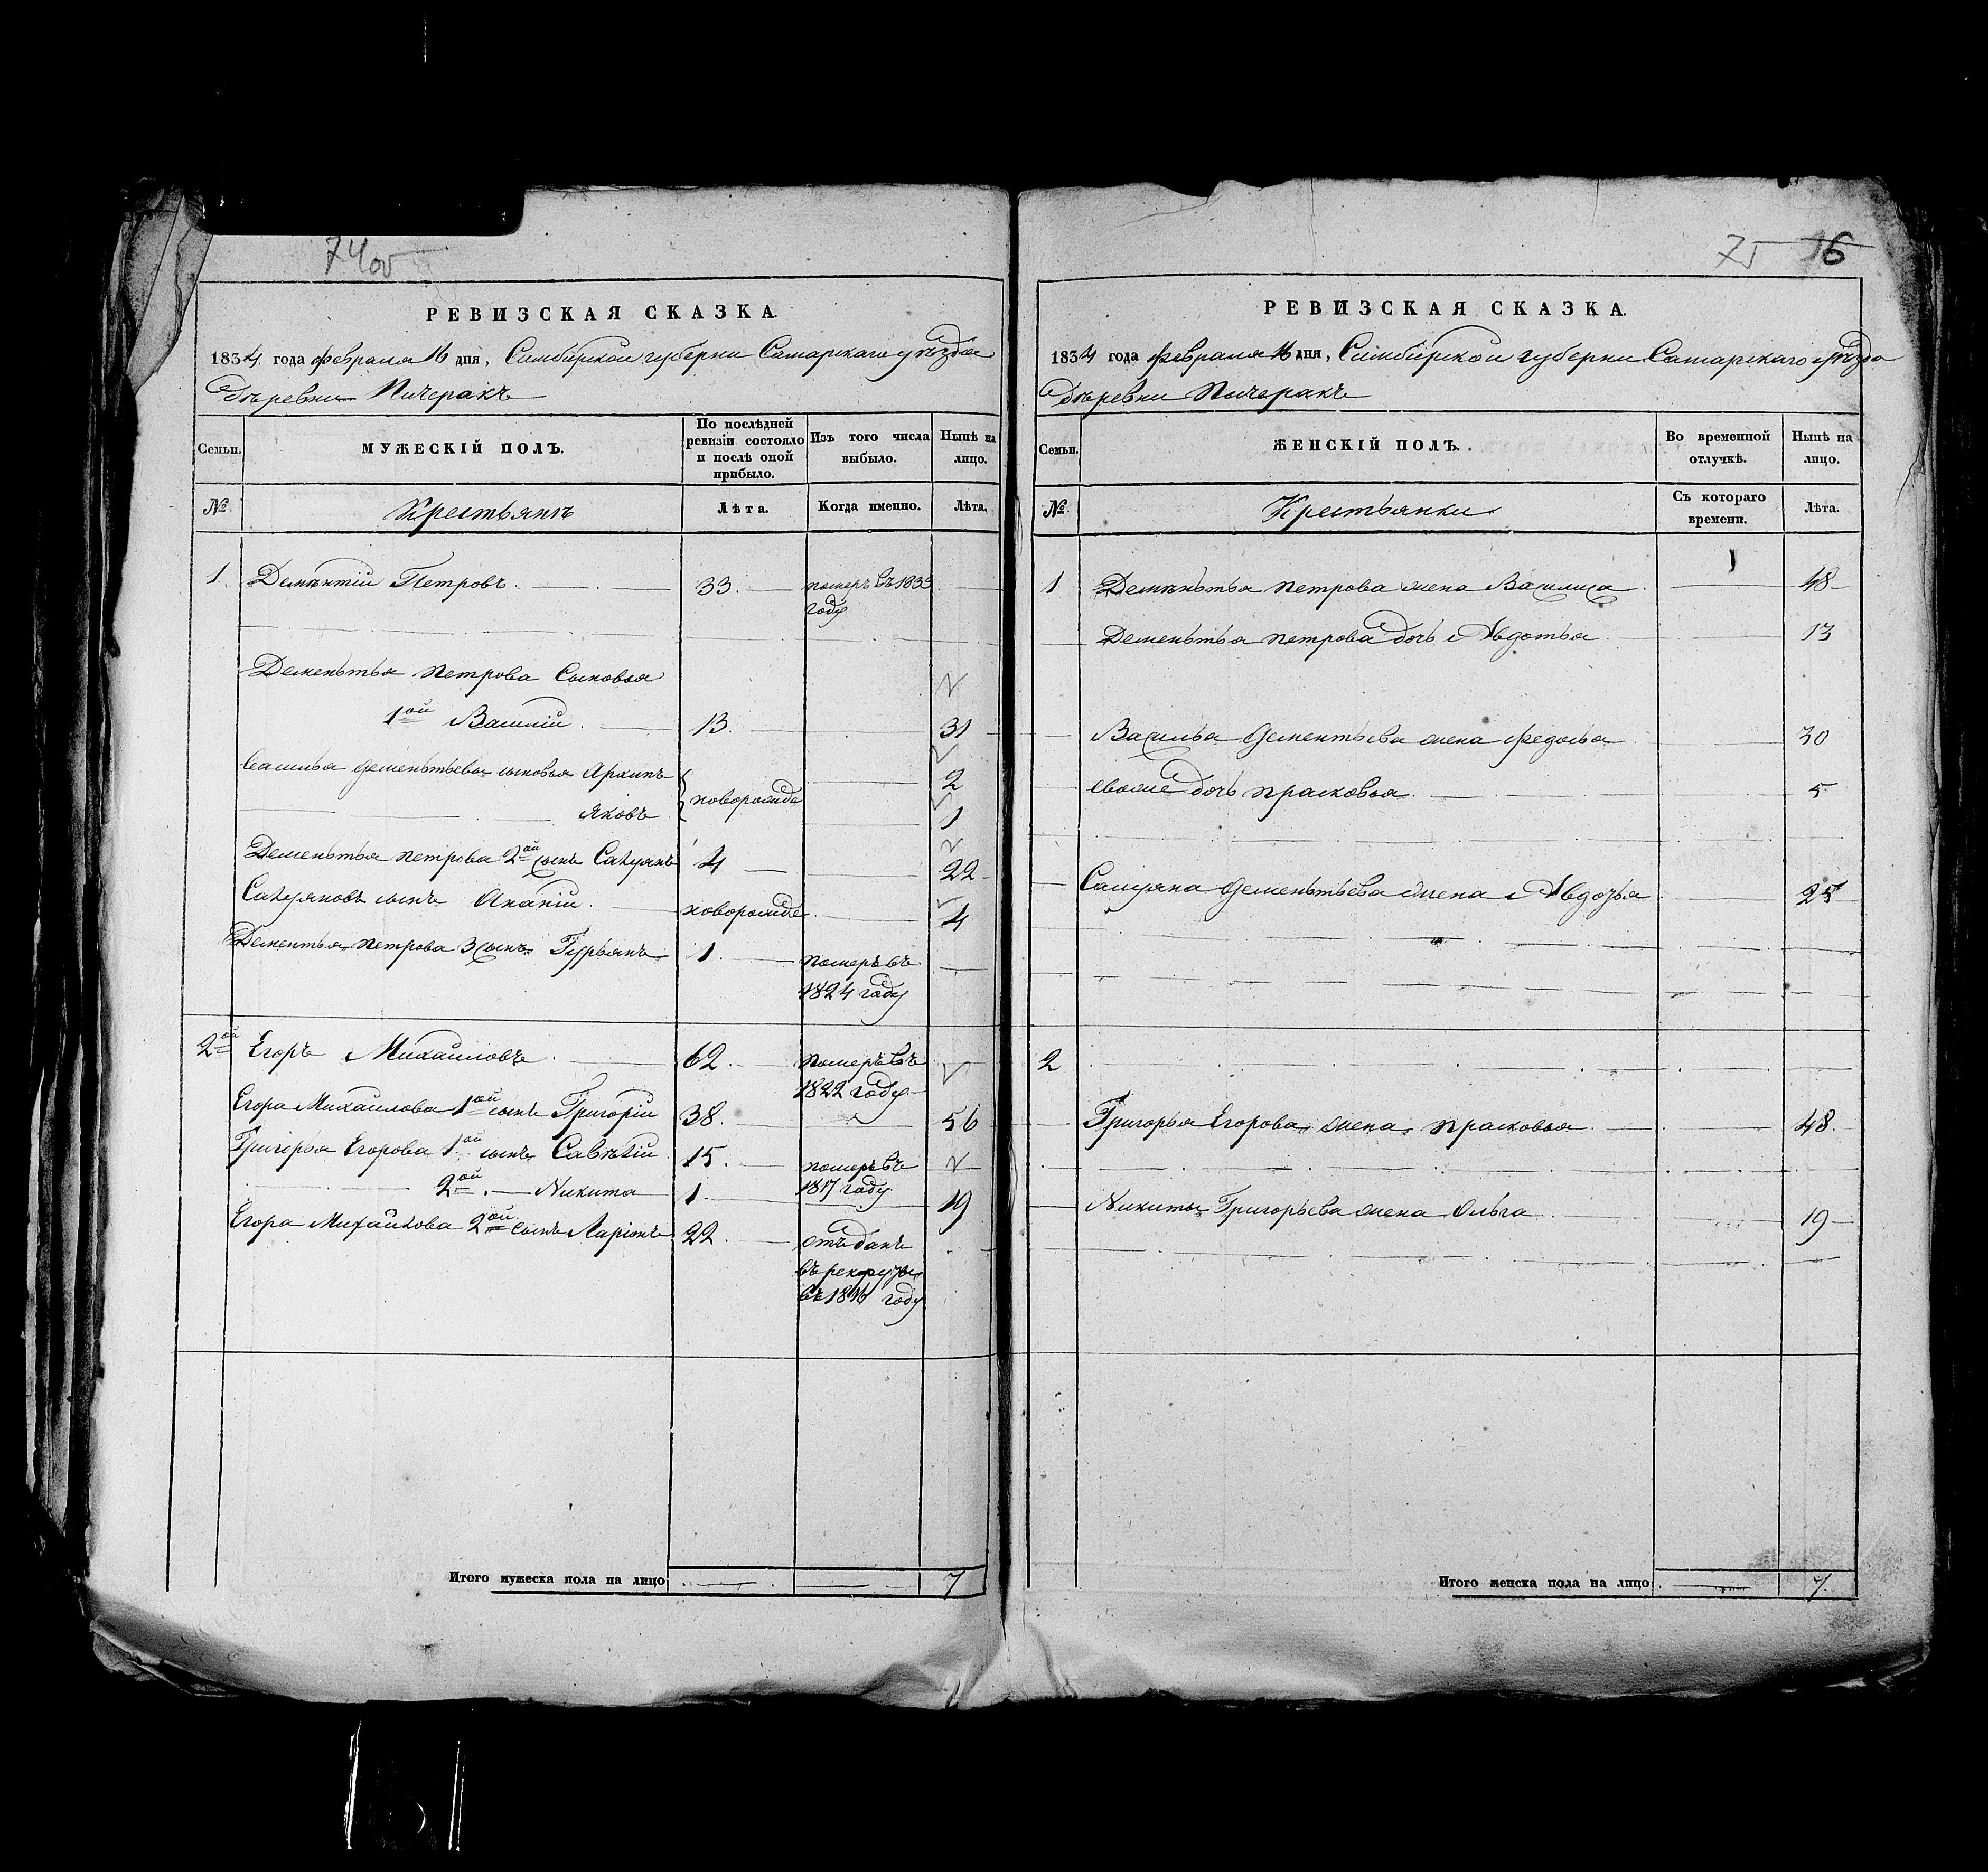 74 об
РЕВИЗСКАЯ СКАЗКА.
1834 года февраля 16 дня, Симбирской губерни Самарскаго уѣзда
Дѣревни Пичеракъ
Семьи.
МУЖЕСКІЙ ПОЛЪ.
По послѣдней ревизіи состояло и послѣ оной прибыло.
Изъ того числа выбыло.
Нынѣ на лицо.
№
Крестьянъ
Лѣта.
Когда именно.
Лѣта.
1. Демѣнтіи Петровъ. 33. померъ въ 1833
году
Деменьтья петрова Сыновья
1ой Василіи. 13. 31
Василья деменьтьева сыновья Архипъ 2
Яковъ новорожде 1
Деменьтья петрова 2ой сынъ 4 22
сынъ Ананіи. новорожде. 4
Дементья петрова 3 сынъ Гурьянъ 1. померъ въ
1824 году
2ой Егоръ Михаиловъ. 62. померъ въ
1822 году
Егора Михаилова 1ой сынъ Григоріи 38. 56
Григорья Егорова 1ой сынъ 15. померъ въ
2ой Никита 1. 1817 году 19
Егора Михаилова 2ой сынъ Ларіонъ 22. отъданъ
въ рекруты
въ 1816 году
Итого мужеска пола на лицо 7
75 16
РЕВИЗСКАЯ СКАЗКА.
1834 года февраля 16 дня, Симбирской губерни Самарскаго уѣзда
Дѣревни Пичеракъ
Семьи.
ЖЕНСКІЙ ПОЛЪ.
Во временной отлучкѣ.
Нынѣ на лицо.
№
Крестьянки
Съ котораго времени.
Лѣта.
1 Демѣньтья петрова жена Василиса 48
Деменьтья петрова дочь Авдотья 13
Василья Дементьева жена Федосья 30
евоже дочь прасковья 5
Деменьтьева жена Авдотья 25
2
Григорья Егорова жена прасковья 48
Никиты Григорьева жена Ольга 19
Итого женска пола на лицо 7.